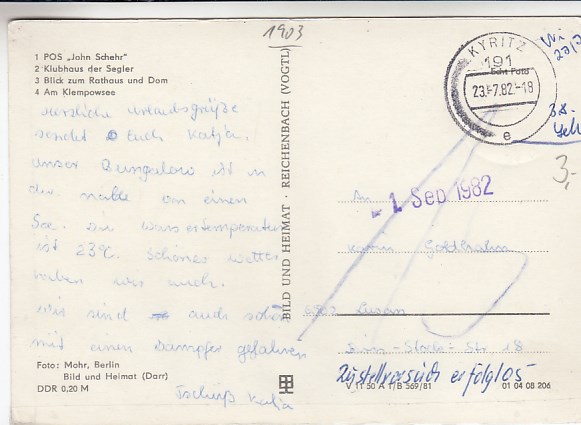 1903
1 POS „John Schehr“
2 Klubhaus der Segler
3 Blick zum Rathaus und Dom
4 Am Klempowsee
Herzliche Urlaubsgrüße
sendet Euch Katja.
Unser Bungalow ist in
der nähe von einem
See. die Wassertemperatur
ist 23°C. Schönes Wetter
haben wir auch.
Wir sind auch schon
mit einen Dampfer gefahren
Tschüß Katja
Foto: Mohr, Berlin
Bild und Heimat (Darr)
DDR 0,20 M
BILD UND HEIMAT · REICHENBACH (VOGTL)
KYRITZ
191
23.-7.82.-18
e
3,-
- 1 Sep 1982
An
Karin Goldhahn
Str. 18
Zustellversuch erfolglos
V 11 50 A 1/B 569/81
01 04 08 206